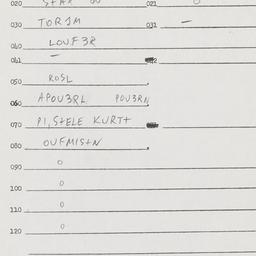 020 021 0
030 TOR3M 031 —
040 LOUF3R
041 — 042
050 ROSL
060 APOU3RL POU3RN
070 PI, STELE KURTT
080 OUFMISTN
090 0
100 0
110 0
120 0